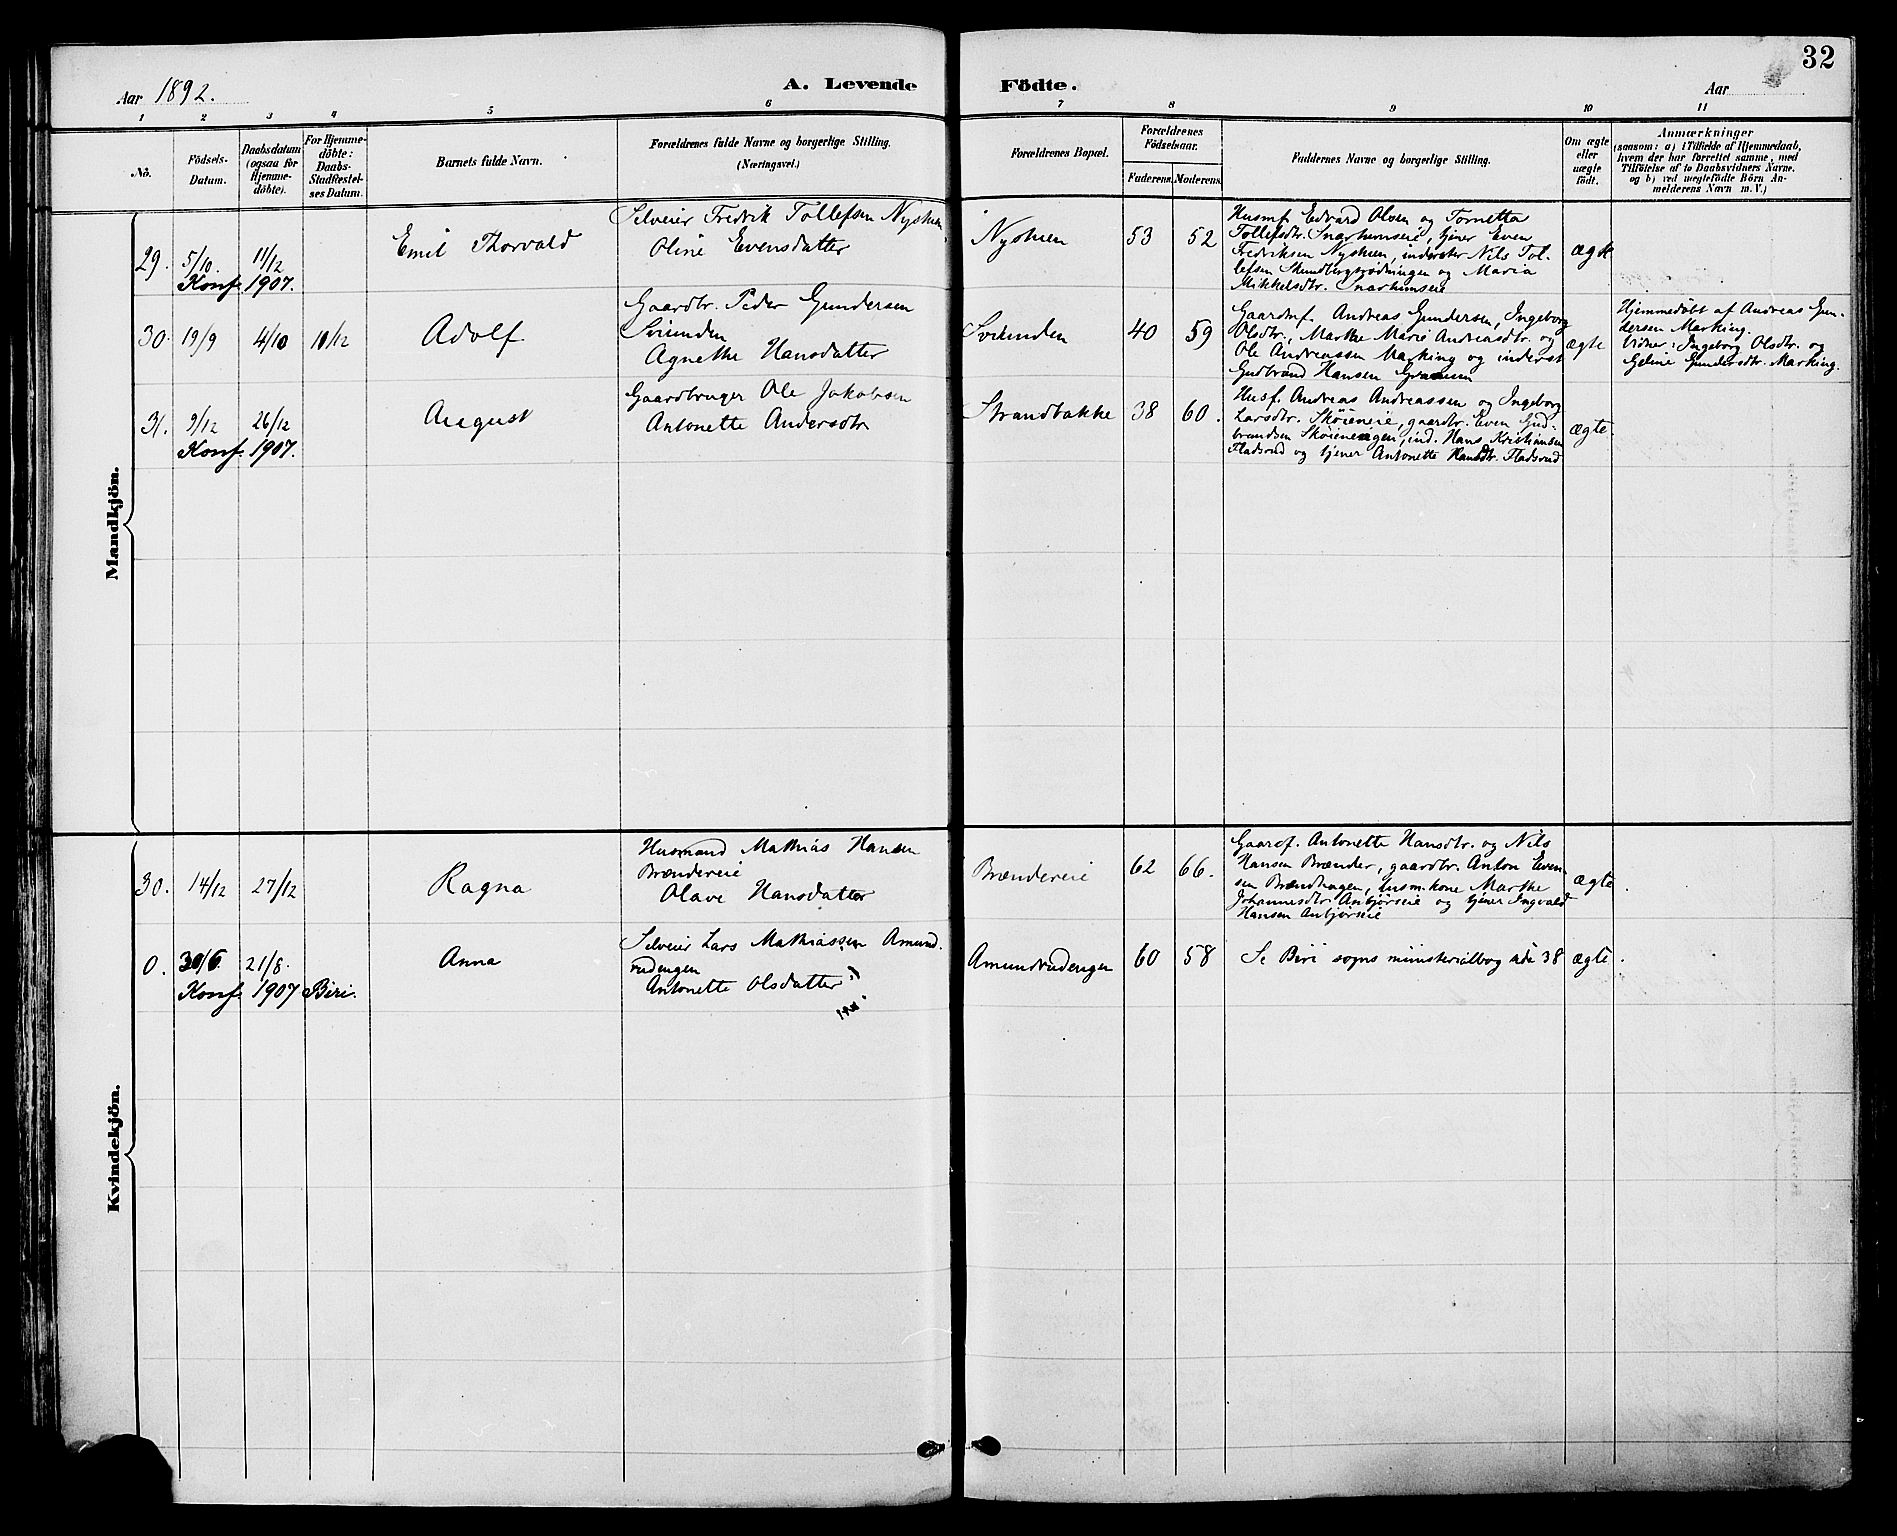 32
Aar 1892.
A. Levende Födte.
Aar
1 2 3 4 5 6 7 8 9 10 11
Nº.
Födsels-
Datum.
Daabsdatum
(ogsaa for
Hjemme-
döbte).
For Hjemme-
döbte:
Daabs-
Stadfæstel-
ses Datum.
Barnets fulde Navn.
Forældrenes fulde Navne og borgerlige Stilling.
(Næringsvei.)
Forældrenes Bopæl.
Forældrenes
Födselsaar.
Faderens. Moderens.
Faddernes Navne og borgerlige Stilling.
Om ægte
eller
uægte
födt.
Anmærkninger
(saasom: a) i Tilfælde af Hjemmedaab,
hvem der har forrettet samme, med
Tilföielse af to Daabsvidners Navne,
og b) ved uegtefödte Börn An-
melderens Navn m. V.)
Mandkjön.
29. 5/10. 11/12
Konf. 1907.
Emil Thorvald
Selveier Fredrik Tollefsen Nyshien
Oline Evensdatter
Nyshien
53 52
Husmf. Edvard Olsen og Tornetta
Tollefsdtr. Snarhemseie, tjener Even
Fredriksen Nyshien, inderster Nils Tol-
lefsen og Maria
Mikkelsdtr. Snarhemseie
ægte
30. 19/9 4/10 10/12
Adolf
Gaardbr. Peder Gundersen
Svienden
Agnethe Hansdatter
Svienden
40 59
Gaardmf. Andreas Gundersen, Ingeborg
Olsdtr., Marthe Marie Andreasdtr. og
Ole Andreassen Marking og inderst
Gudbrand Hansen
ægte
Hjemmedøbt af Andreas Gun-
dersen Marking.
Vidner: Ingeborg Olsdtr. og
Geline Gundersdtr. Marking.
31. 9/12 26/12
Konf. 1907.
August
Gaardbruger Ole Jakobsen
Antonette Andersdtr
Strandbakke
38 60.
Husf. Andreas Andreassen og Ingeborg
Larsdtr. Skøieneie, gaardbr. Even Gud-
brandsen Skøieneiegen, ind. Hans Kristiansen
Fladsrud og tjener Antonette Hansdtr. Fladsrud
ægte.
Kvindekjön.
30. 14/12 27/12
Ragna
Husmand Mathias Hansen
Brændereie
Olave Hansdatter
Brændereie
62 66.
Gaardf. Antonette Hansdtr. og Nils
Hansen Brænder, gaardbr. Anton Even-
sen Brændhagen, husm. kone Marthe
Johannesdtr. Anbjørseie og tjener Ingvald
Hansen Anbjørseie
ægte.
0. 30/6. 21/8.
Konf. 1907 Biri.
Anna
Selveier Lars Mathiassen Amund-
rudengen
Antonette Olsdatter
Amundrudengen
60 58
Se Biri sogns ministerialbog side 38
ægte.